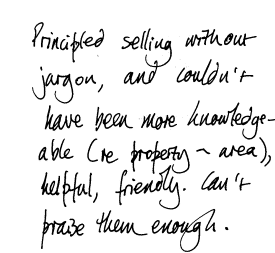 Principled selling without
jargon, and couldn't
have been more knowledge-
able (re property ~ area),
helpful, friendly. Can't
praise them enough.